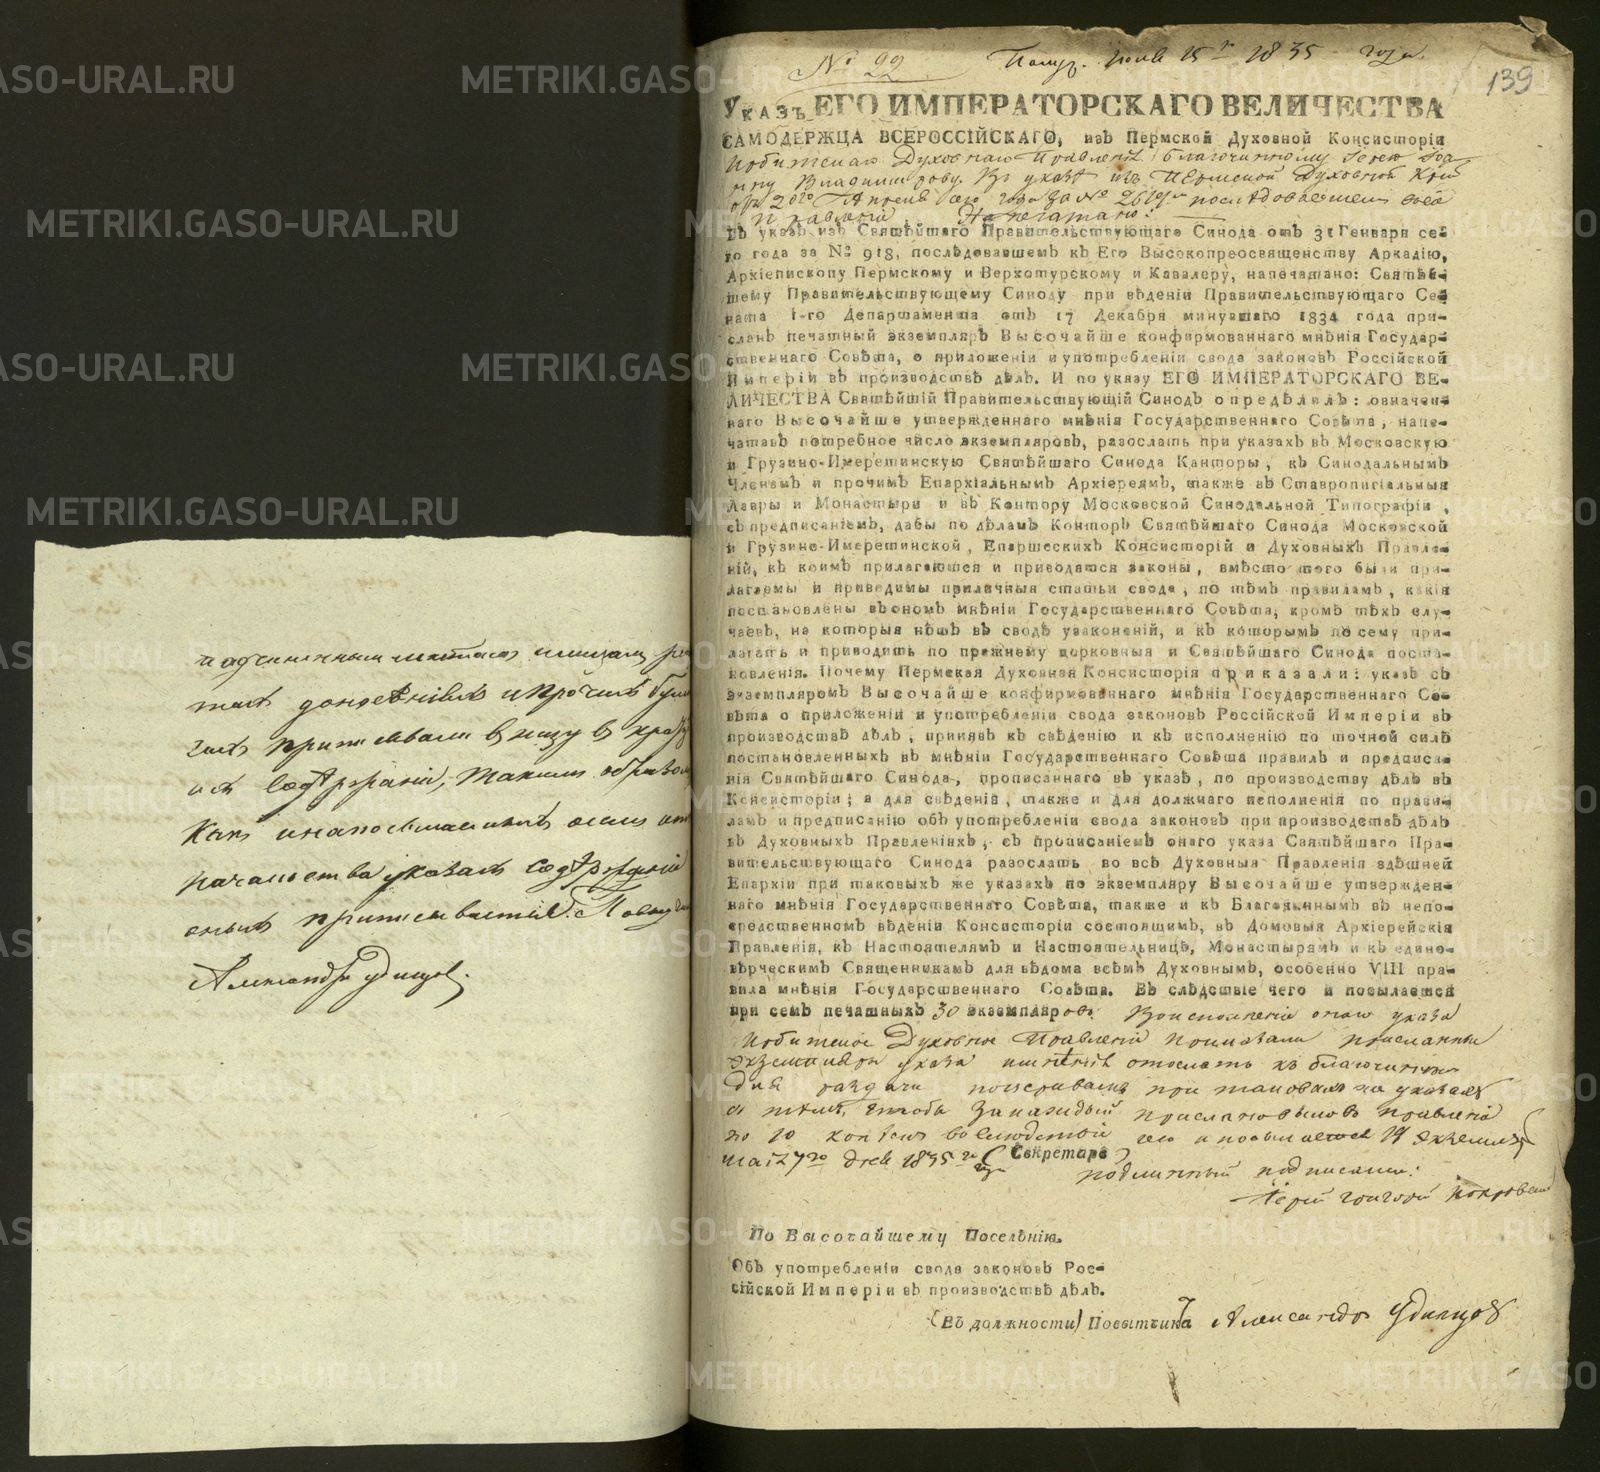 подчиненнымъ
донесенiяхъ и прочихъ
приписывали внизу в
ихъ содержанiи, такимъ образомъ
Какъ
начальства указахъ содержанiи
оныхъ приписывается.
Александръ Удинцов.
№ 22 Получ. Июня 15го 1835 года
139
УКАЗЪ ЕГО ИМПЕРАТОРСКАГО ВЕЛИЧЕСТВА
САМОДЕРЖЦА ВСЕРОССІЙСКАГО, изъ Пермской Духовной Консисторіи
Духовнаго Правленія Благочинному Іерею Іоа
нну Владимірову. Въ указѣ изъ Пермской Духовной
отъ 2го Апреля сего года за № последовавшемъ въ сiе
Правленiе, Напечатано:
въ указѣ изъ Святѣйшаго Правительствующаго Синода отъ 31 Генваря се-
го года за № 918, послѣдовавшемъ къ Его Высокопреосвященству Аркадію,
Архіепископу Пермскому и Верхотурскому и Кавалеру, напечатано: Святѣй-
шему Правительствующему Синоду при вѣденіи Правительствующаго Се-
ната 1-го Департамента отъ 17 Декабря минувшаго 1834 года при-
сланъ печатный экземпляръ Высочайше конфирмованнаго мнѣнія Государ-
ственнаго Совѣта, о приложеніи и употребленіи свода законовъ Россійской
Имперіи въ производствѣ дѣлъ. И по указу ЕГО ИМПЕРАТОРСКАГО ВЕ-
ЛИЧЕСТВА Святѣйшій Правительствующій Синодъ опредѣлилъ: означен-
наго Высочайше утвержденнаго мнѣнія Государственнаго Совѣта, напе-
чатавъ потребное число экземпляровъ, разослать при указахъ въ Московскую
и Грузино-Имеретинскую Святѣйшаго Синода Канторы, къ Синодальнымъ
Членамъ и прочимъ Епархіальнымъ Архіереямъ, также въ Ставропигіальныя
Лавры и Монастыри и въ Контору Московской Синодальной Типографіи,
съ предписаніемъ, дабы по дѣламъ Конторъ Святѣйшаго Синода Московской
и Грузино-Имеретинской, Епаршескихъ Консисторій и Духовныхъ Правле-
ній, къ коимъ прилагаются и приводятся законы, вмѣсто того были при-
лагаемы и приводимы приличныя статьи свода, по тѣмъ правиламъ, какія
постановлены въ ономъ мнѣніи Государственнаго Совѣта, кромѣ тѣхъ слу-
чаевъ, на которыя нѣтъ въ сводѣ узаконеній, и къ которымъ по сему при-
лагать и приводить по прежнему церковныя и Святѣйшаго Синода поста-
новленія. Почему Пермская Духовная Консисторія приказали: указъ съ
экземпляромъ Высочайше конфирмованнаго мнѣнія Государственнаго Со-
вѣта о приложеніи и употребленіи свода законовъ Россійской Имперіи въ
производствѣ дѣлъ, принявъ къ свѣденію и къ исполненію по точной силѣ
постановленныхъ въ мнѣніи Государственнаго Совѣта правилъ и предписа-
нія Святѣйшаго Синода, прописаннаго въ указѣ, по производству дѣлъ въ
Консисторіи; а для свѣденія, также и для должнаго исполненія по прави-
ламъ и предписанію объ употребленіи свода законовъ при производствѣ дѣлъ
въ Духовныхъ Правленіяхъ, съ прописаніемъ онаго указа Святѣйшаго Пра-
вительствующаго Синода разослать во всѣ Духовныя Правленія здѣшней
Епархіи при таковыхъ же указахъ по экземпляру Высочайше утвержден-
наго мнѣнія Государственнаго Совѣта, также и къ Благочиннымъ въ непо-
средственномъ вѣденіи Консисторіи состоящимъ, въ Домовыя Архіерейскія
Правленія, къ Настоятелямъ и Настоятельницѣ, Монастырямъ и къ едино-
вѣрческимъ Священникамъ для вѣдома всѣмъ Духовнымъ, особенно VIII пра-
вила мнѣнія Государственнаго Совѣта. Въ слѣдствіе чего и посылается
при семъ печатныхъ 30 экземпляровъ. Воисполненiе онаго указа
Духовное Правленiе Приказали присланные
экземпляры указа отослать къ благочиннымъ
для раздачи по церквамъ при таковыхъ же указахъ
с тѣмъ, чтобы за каждый прислано было въ правленiе
по 10 копеек во следствiе сего и посылается 14 экземпляр
маiя 27го дня 1835 го года (Секретарь)
подлинный подписали:
Iерей Григорiй Покровский
По Высочайшему Повелѣнію.
Объ употребленіи свода законовъ Рос-
сійской Имперіи въ производствѣ дѣлъ.
(Въ должности) Повытчика Александръ Удинцовъ